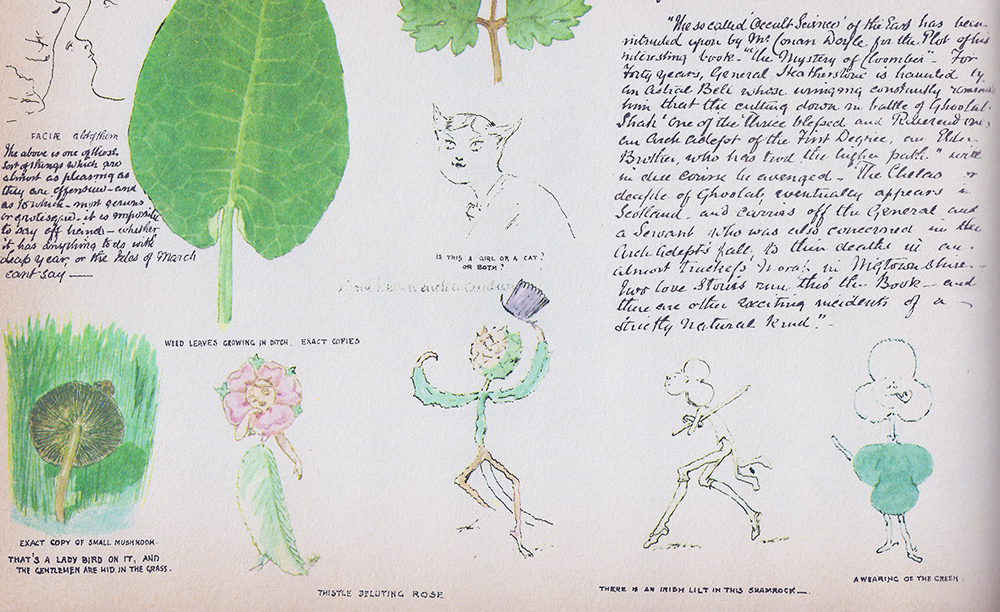 FACIÆ
The above is one of those
sort of things which are
almost as pleasing as
they are offensive - and
as to which - most serious
or grotesque. it is impossible
to say off hands - whether
it has anything to do with
leap year, or the Ides of March
cant say —
"The so called 'Occult Science' of the East has been
intruded upon by Mr Conan Doyle for the Plot of his
interesting book - "The Mystery of Cloomber" - For
Forty years, General Heatherstone is haunted by
an Astral Bell whose ringing constantly
him that the cutting down in battle of Ghoolab
Shah' one of the thrice blessed and Reverend
an Arch adept of the First Degree, an Elder
Brother, who has trod the higher path" will
in due course be avenged - The Chelas or
of Ghoolab, eventually appears in
Scotland, and carries off the General and
a Servant who was also concerned in the
Arch Adept's fall, to their deaths in an
almost trackless in Wigtownshire -
Two love Stories run thro' the Book - and
there are other exciting incidents of a
strictly natural Kind." -
IS THIS A GIRL OR A CAT?
OR BOTH?
WEED LEAVES GROWING IN DITCH, EXACT COPIES
EXACT COPY OF SMALL MUSHROOM.
THAT'S A LADY BIRD ON IT, AND
THE GENTLEMEN ARE HID IN THE GRASS.
THISTLE SELUTING ROSE
THERE IS AN IRISH LILT IN THIS SHAMROCK —
A WEARING OF THE GREEN.